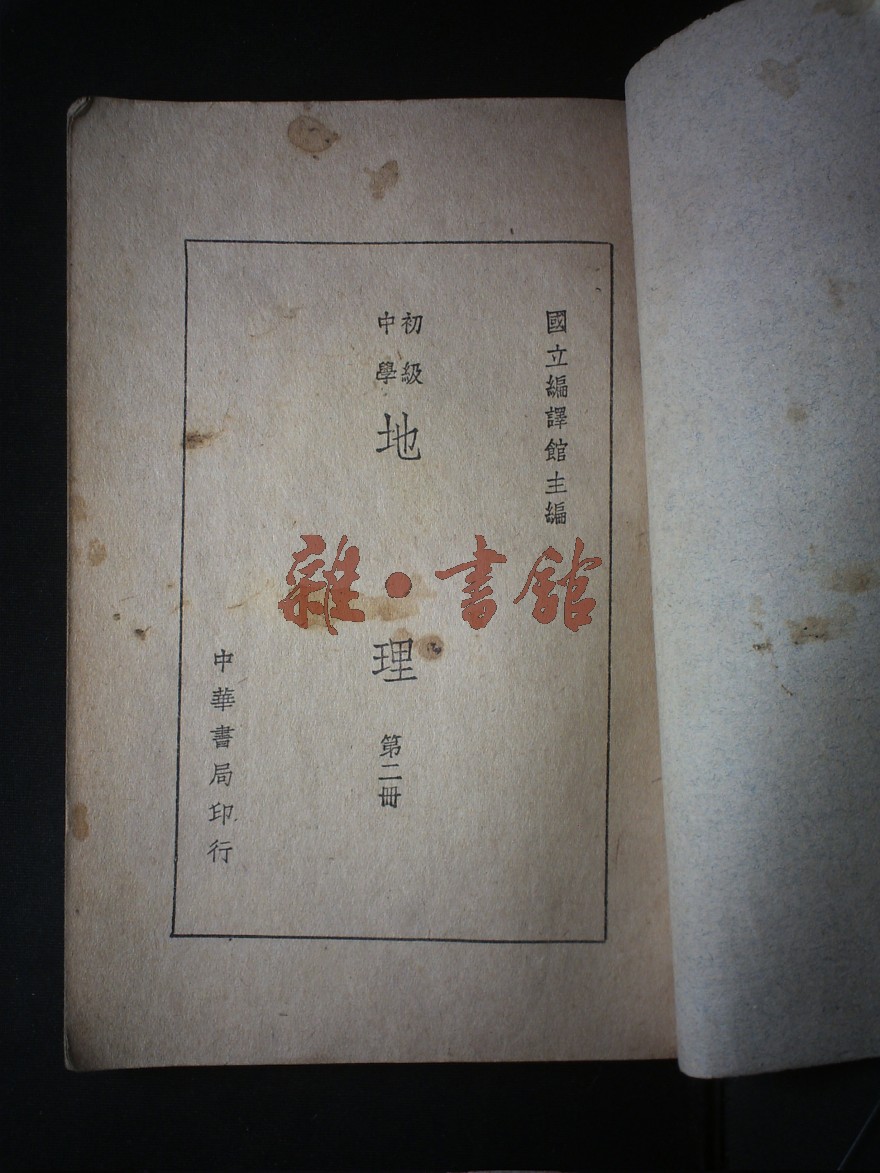 國立編譯館主編
初級
中學
地理
第二冊
中華書局印行
雜·書館